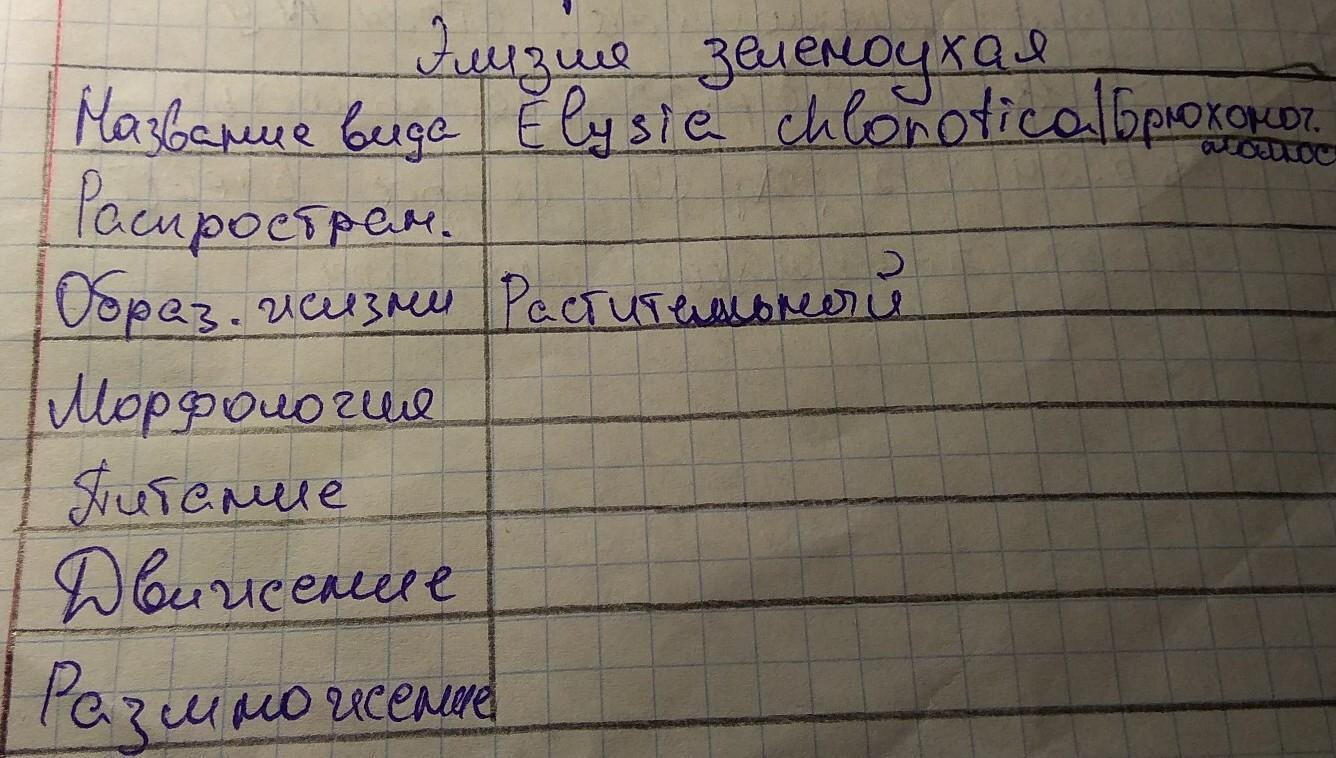 Элизия зеленоухая
Название вида Elysia chlorotica/Брюхоног.
моллюс
Распростран.
Образ. жизни Растительный
Морфология
Питание
Движение
Размножение